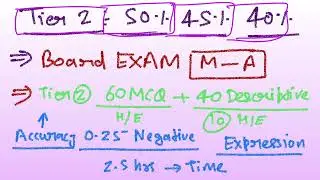 Tier 2 - 50.1. 45.1. 40.1.
⇒ Board EXAM M-A
⇒ Tier ② 60 MCQ + 40 Descriptive
H/E ⑩ H/E
Accuracy 0.25 Negative Expression
2.5 hrs → Time